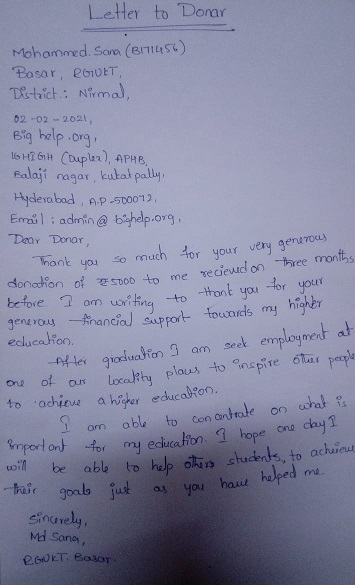 Letter to Donar
Mohammed. Sana (B171456)
Basar, RGUKT,
District : Nirmal,
02-02-2021,
Big help.org,
16HIGH (Duplex), APHB,
Balaji nagar, kukatpally,
Hyderabad, A.P-500072,
Email : admin@bighelp.org,
Dear Donar,
Thank you so much for your very generous
donation of ₹5000 to me recieved on three months
before I am writing to thank you for your
generous financial support towards my higher
education.
After graduation I am seek employment at
one of our locality plans to inspire other people
to achieve a higher education.
I am able to concentrate on what is
important for my education. I hope one day I
will be able to help others students, to achieve
their goals just as you have helped me.
Sincerely,
Md Sana,
RGUKT-Basar.